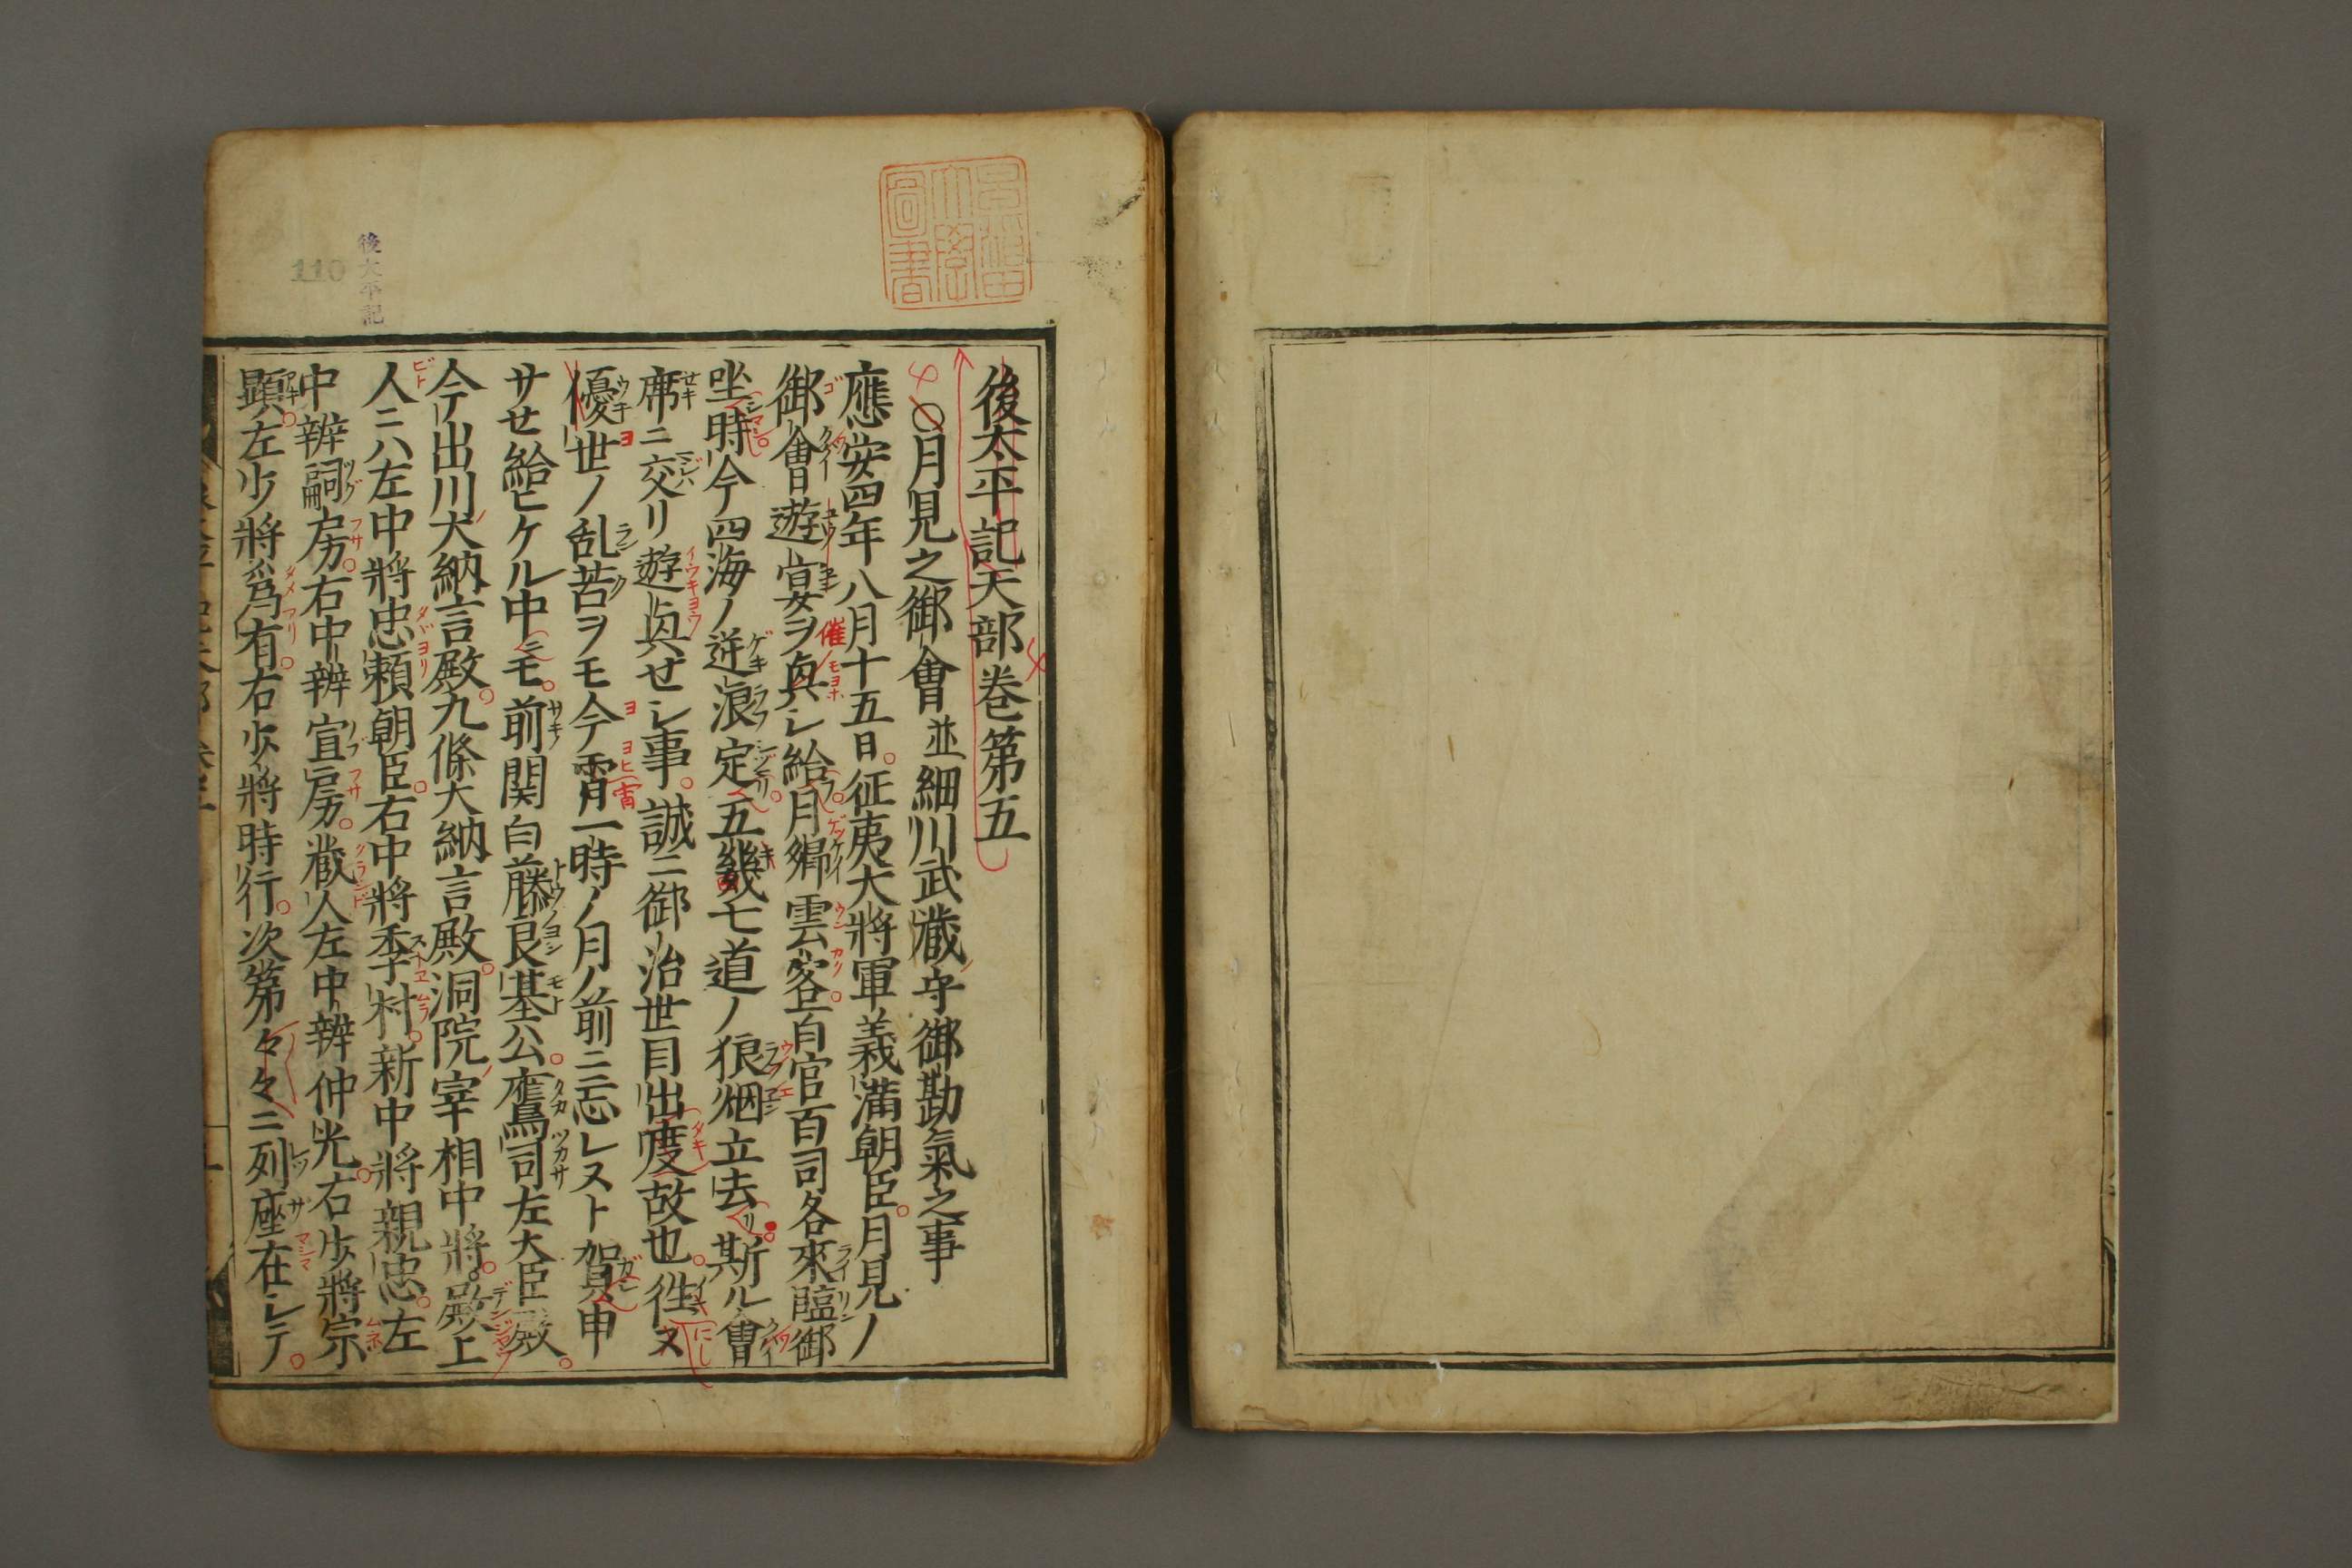 後太平記天部巻第五
〇月見之御會並細川武藏守御勘氣之事
應安四年八月十五日征夷大將軍義滿朝臣月見ノ
御會遊宴ヲ眞シ給月郷雲客百官百司各來臨御
坐時今四海ノ逆浪定五幾七道ノ狼烟立去斯ル會
席ニ交リ遊眞せシ事誠ニ御治世目出度故也徃ヌ
優世ノ乱苦ヲモ今霄一時ノ月ノ前ニ忘レヌト賀申
サせ給ヒケル中ニモ前関白藤良基公鷹司左大臣殿
今出川大納言殿九條大納言殿洞院宰相中將殿上
人ニハ左中將忠頼朝臣右中將季村新中將親忠左
中辨嗣房右中辨宣房藏人左中辨仲光右少將宗
顯左少將爲有右少將時行次第々々ニ列座在シテ
後太平記
110